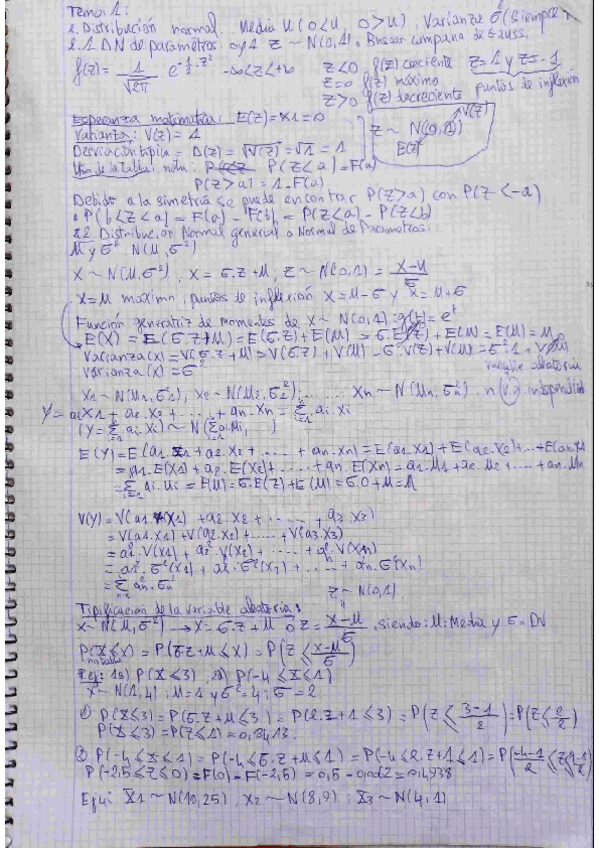 Tema 1:
1. Distribución normal. Media μ (0<μ, 0>μ), Varianza σ² (Siempre
2.1 DN de parámetros 0 y 1 Z ~ N(0,1). Buscar campana de Gauss.
f(z) = 1/√2π e^-1/2·z² -∞<z<+∞ z<0 f(z) creciente z=1 y z=-1
z=0 f(z) máximo puntos de inflexión
z>0 f(z) decreciente
Esperanza matemática: E(z)=0
Varianza: V(z) = 1
Desviación típica = D(z) = √V(z) = √1 = 1
z ~ N(0,1) V(z) E(z)
Uso de la tabla: nota: P(z<a) = F(a)
P(z>a) = 1-F(a)
Debido a la simetría se puede encontrar P(z>a) con P(z<-a)
• P(b<z<a) = F(a) - F(b) = P(z<a) - P(z<b)
2.2 Distribución Normal general o Normal de Parámetros:
M y σ² N(M,σ²)
X ~ N(M,σ²), X = σ.Z+M, Z ~ N(0,1) = X-M/σ
X=M máximo, puntos de inflexión X=M-σ y X=M+σ
Función generatriz de momentos de X ~ N(0,1):
E(X) = E(σ.Z+M) = E(σ.Z) + E(M) = σ.E(Z) + E(M) = E(M) = M
Varianza(x) = V(σ.Z+M) = V(σ.Z) + V(M) = σ².V(Z)+V(M) = σ².1 + V(M)
varianza(x) = σ² variable aleatoria
X1 ~ N(M1,σ1²), X2 ~ N(M2,σ2²) ..... Xn ~ N(Mn,σn²).
Y = a1X1 + a2.X2 + ..... + an.Xn = Σ ai.Xi
E(Y) = E(a1.X1 + a2.X2 + ..... + an.Xn) = E(a1.X1) + E(a2.X2) + ...
= a1.E(X1) + a2.E(X2) + ..... + an.E(Xn) = a1.M1 + a2.M2 + .... + an.Mn
= Σ ai.Mi = E(M) = σ.E(Z) + E(M) = σ.0+M = M
V(Y) = V(a1.X1) + a2.X2 + ..... + a3.X3)
= V(a1.X1) + V(a2.X2) + ..... + V(a3.X3)
= a1².V(X1) + a2².V(X2) + ..... + an².V(Xn)
= a1².σ²(X1) + a2².σ²(X2) + ..... + an².σ²(Xn)
= Σ an².σn²
Z ~ N(0,1)
Tipificación de la variable aleatoria:
X ~ N(M,σ²) → X = σ.Z+M o Z = X-M/σ, siendo: M: Media y σ = DN
P(X≤x) = P(σ.Z+M≤x) = P(Z≤ x-M/σ)
no tabla
P.ej: 1º) P(X≤3), 2) P(-4≤X≤1)
X ~ N(1,4); M=1 y σ²=4; σ=2
① P(X≤3) = P(σ.Z+M≤3) = P(2.Z+1≤3) = P(Z≤ 3-1/2) = P(Z≤ 2/2)
P(X≤3) = P(Z≤1) = 0,3413.
② P(-4≤X≤1) = P(-4≤σ.Z+M≤1) = P(-4≤2.Z+1≤1) = P(-4-1/2 ≤Z≤ 1-1/2)
P(-2,5≤Z≤0) = F(0) - F(-2,5) = 0,5 - 0,0062 = 0,4938
Ejm: X1 ~ N(10,25), X2 ~ N(8,9); X3 ~ N(4,1)